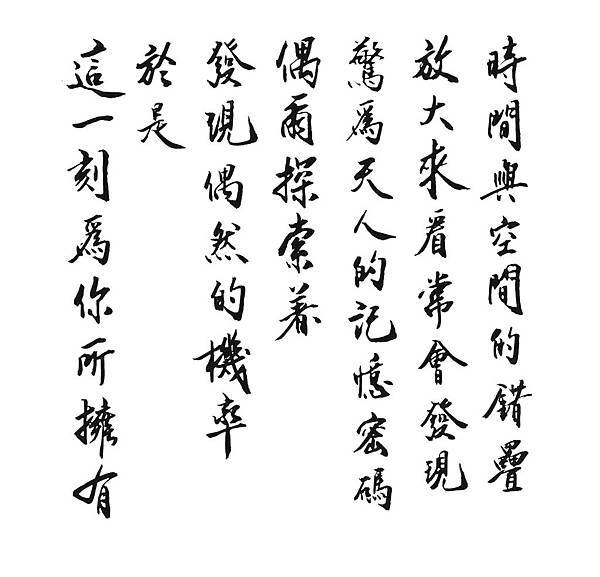 時間與空間的錯疊
放大來看常會發現
驚為天人的記憶密碼
偶爾探索着
發現偶然的機率
於是
這一刻為你所擁有